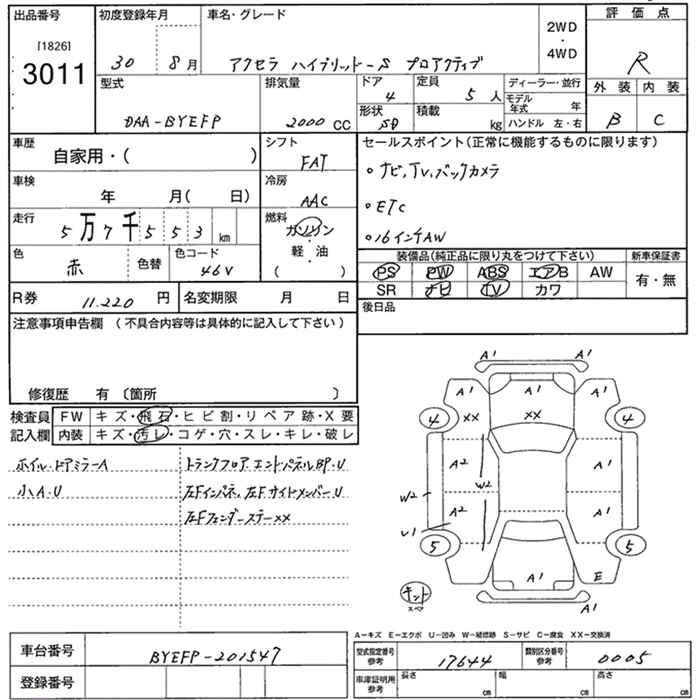 出品番号
[1826]
3011
初度登録年月
30 8月
車名・グレード
アクセラ ハイブリッド-S プロアクティブ
2WD
・
4WD
評価点
R
外装 内装
B C
型式
DAA-BYEFP
排気量
2000 CC
ドア
4
定員
5 人
形状
SD
積載
kg
ディーラー・並行
モデル年式 年
ハンドル 左・右
車歴
自家用・( )
シフト
FAT
車検
年 月( 日)
冷房
AAC
走行
5万7千553 km
燃料
ガソリン
・
軽・油
( )
色
赤
色替
色コード
46V
R券
11.220 円
名変期限 月 日
セールスポイント(正常に機能するものに限ります)
・ナビ,TV,バックカメラ
・ETC
・16インチAW
装備品(純正品に限り丸をつけて下さい)
PS PW ABS エアB AW
SR ナビ TV カワ
新車保証書
有・無
後日品
注意事項申告欄 (不具合内容等は具体的に記入して下さい)
修復歴 有 〔箇所 〕
検査員
記入欄
FW キズ・飛石・ヒビ割・リペア跡・X要
内装 キズ・汚レ・コゲ・穴・スレ・キレ・破レ
ホイル・ドアミラーA
小A・U
トランクフロア エンドパネルBP・U
左Fインパネ,左FサイドメンバーU
左Fフェンダーステーxx
A1
A1 A1 A1
4 XX XX 4
A2 A1
W2 W2
A2 A1
V1
5 5
A1 E
キット
スペア
A1
A-キズ E-エクボ U-凹み W-補修跡 S-サビ C-腐食 XX-交換済
車台番号
BYEFP-201547
登録番号
型式指定番号
参考
17644
類別区分番号
参考
0005
車庫証明用
参考
長さ cm
幅 cm
高さ cm